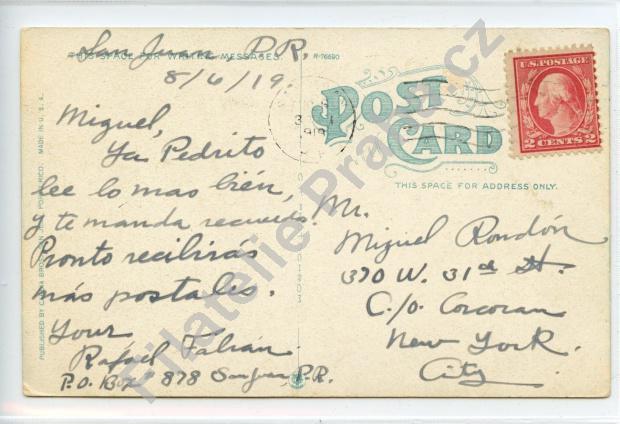 San Juan, P.R.
THIS SPACE FOR WRITTEN MESSAGES.
R-76690
8/6/19.
Miguel,
Ya Pedrito
lee lo mas bién,
y te manda recuerdo.
Pronto recibirás
más postales.
Your
Rafael Fabián
P.O. Box - 878 San Juan P.R.
POST CARD
THIS SPACE FOR ADDRESS ONLY.
U.S. POSTAGE
2 CENTS 2
Mr.
Miguel Rondón
370 W. 31st St.
C/O. Corcoran
New York.
City.
PORTO RICO. MADE IN U.S.A.
PUBLISHED BY
Filatelie-Prague.cz